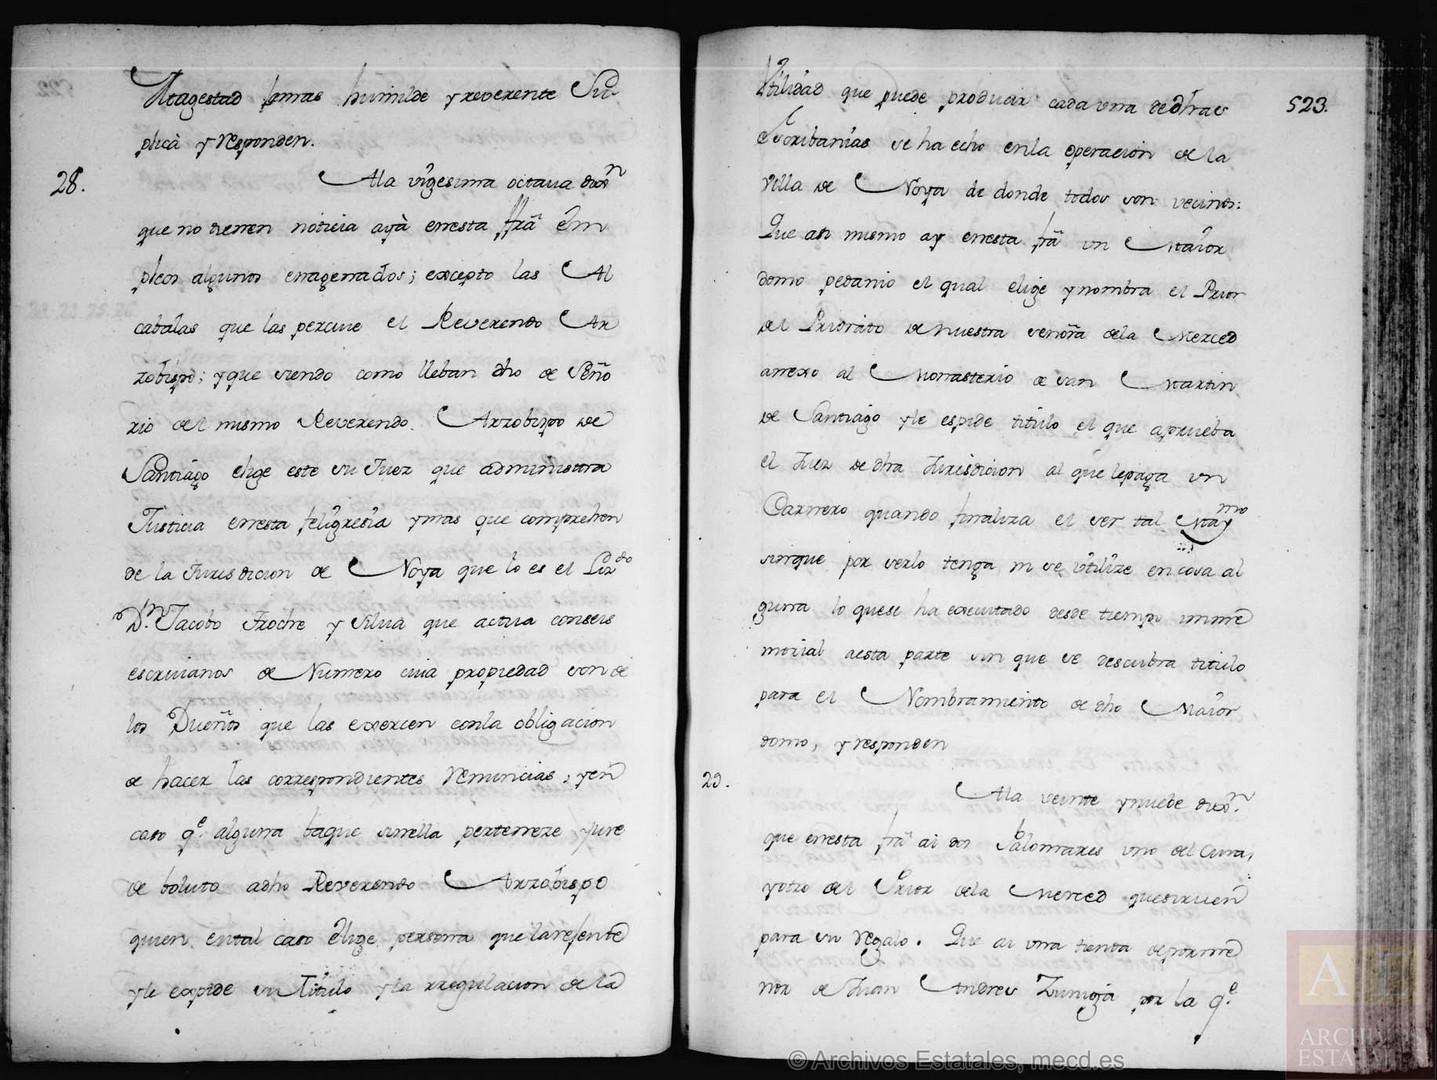 Magestad formas humilde y reverente Su-
plica y responden.
28. Ala vigesima octava dixn
que no tienen noticia ayà enesta frâ Em
pleos algunos enagenados; excepto las Al
cabalas que las percive el Reverendo Ar
zobispo; y que siendo como lleban dho de Seño
rio del mismo Reverendo Arzobispo de
Santiago elige este su Juez que administra
Justicia enesta feligresia y mas que comprehen
de la Jurisdicion de Noya que lo es el Lizdo
Dn. Jacobo y Silva que actua conseis
escrivanos de Numero cuia propiedad son de
los Dueños que las exercen conla obligacion
de hacer las correspondientes renuncias, y en
caso qe. alguna baque sinella perteneze y
de boluto adho Reverendo Arzobispo
quien ental caso elige persona que la
y le expide su Titulo y la rregulacion de la
523.
Vtilidad que puede producir cada vna dedhas
escribanias se ha echo enla operacion de la
villa de Noya de donde todos son vecinos:
Que asi mismo ay enesta frâ un Maior
domo pedanio el qual elige y nombra el Prior
del Priorato de nuestra señora dela Merced
anexo al Monasterio de san Martin
de Santiago y le espide titulo el que aprueba
el Juez de dha Jurisdicion al que le paga un
Carnero quando finaliza el ser tal Maymo
sinque por serlo tenga ni se vtilize en cosa al
guna lo quese ha executado desde tiempo imme
morial aesta parte sin que se descubra titulo
para el Nombramiento de dho Maior
domo, y responden
29. Ala veinte y nuebe dixn.
que enesta frâ ai dos Palomares uno del Cura,
y otro del Prior dela Merced quesirven
para su regalo. Que ai vna tienda deporme
nor de Juan Andres Zuniga por la qe.
© Archivos Estatales, mecd.es
AE
ARCHIVOS
ESTATALES